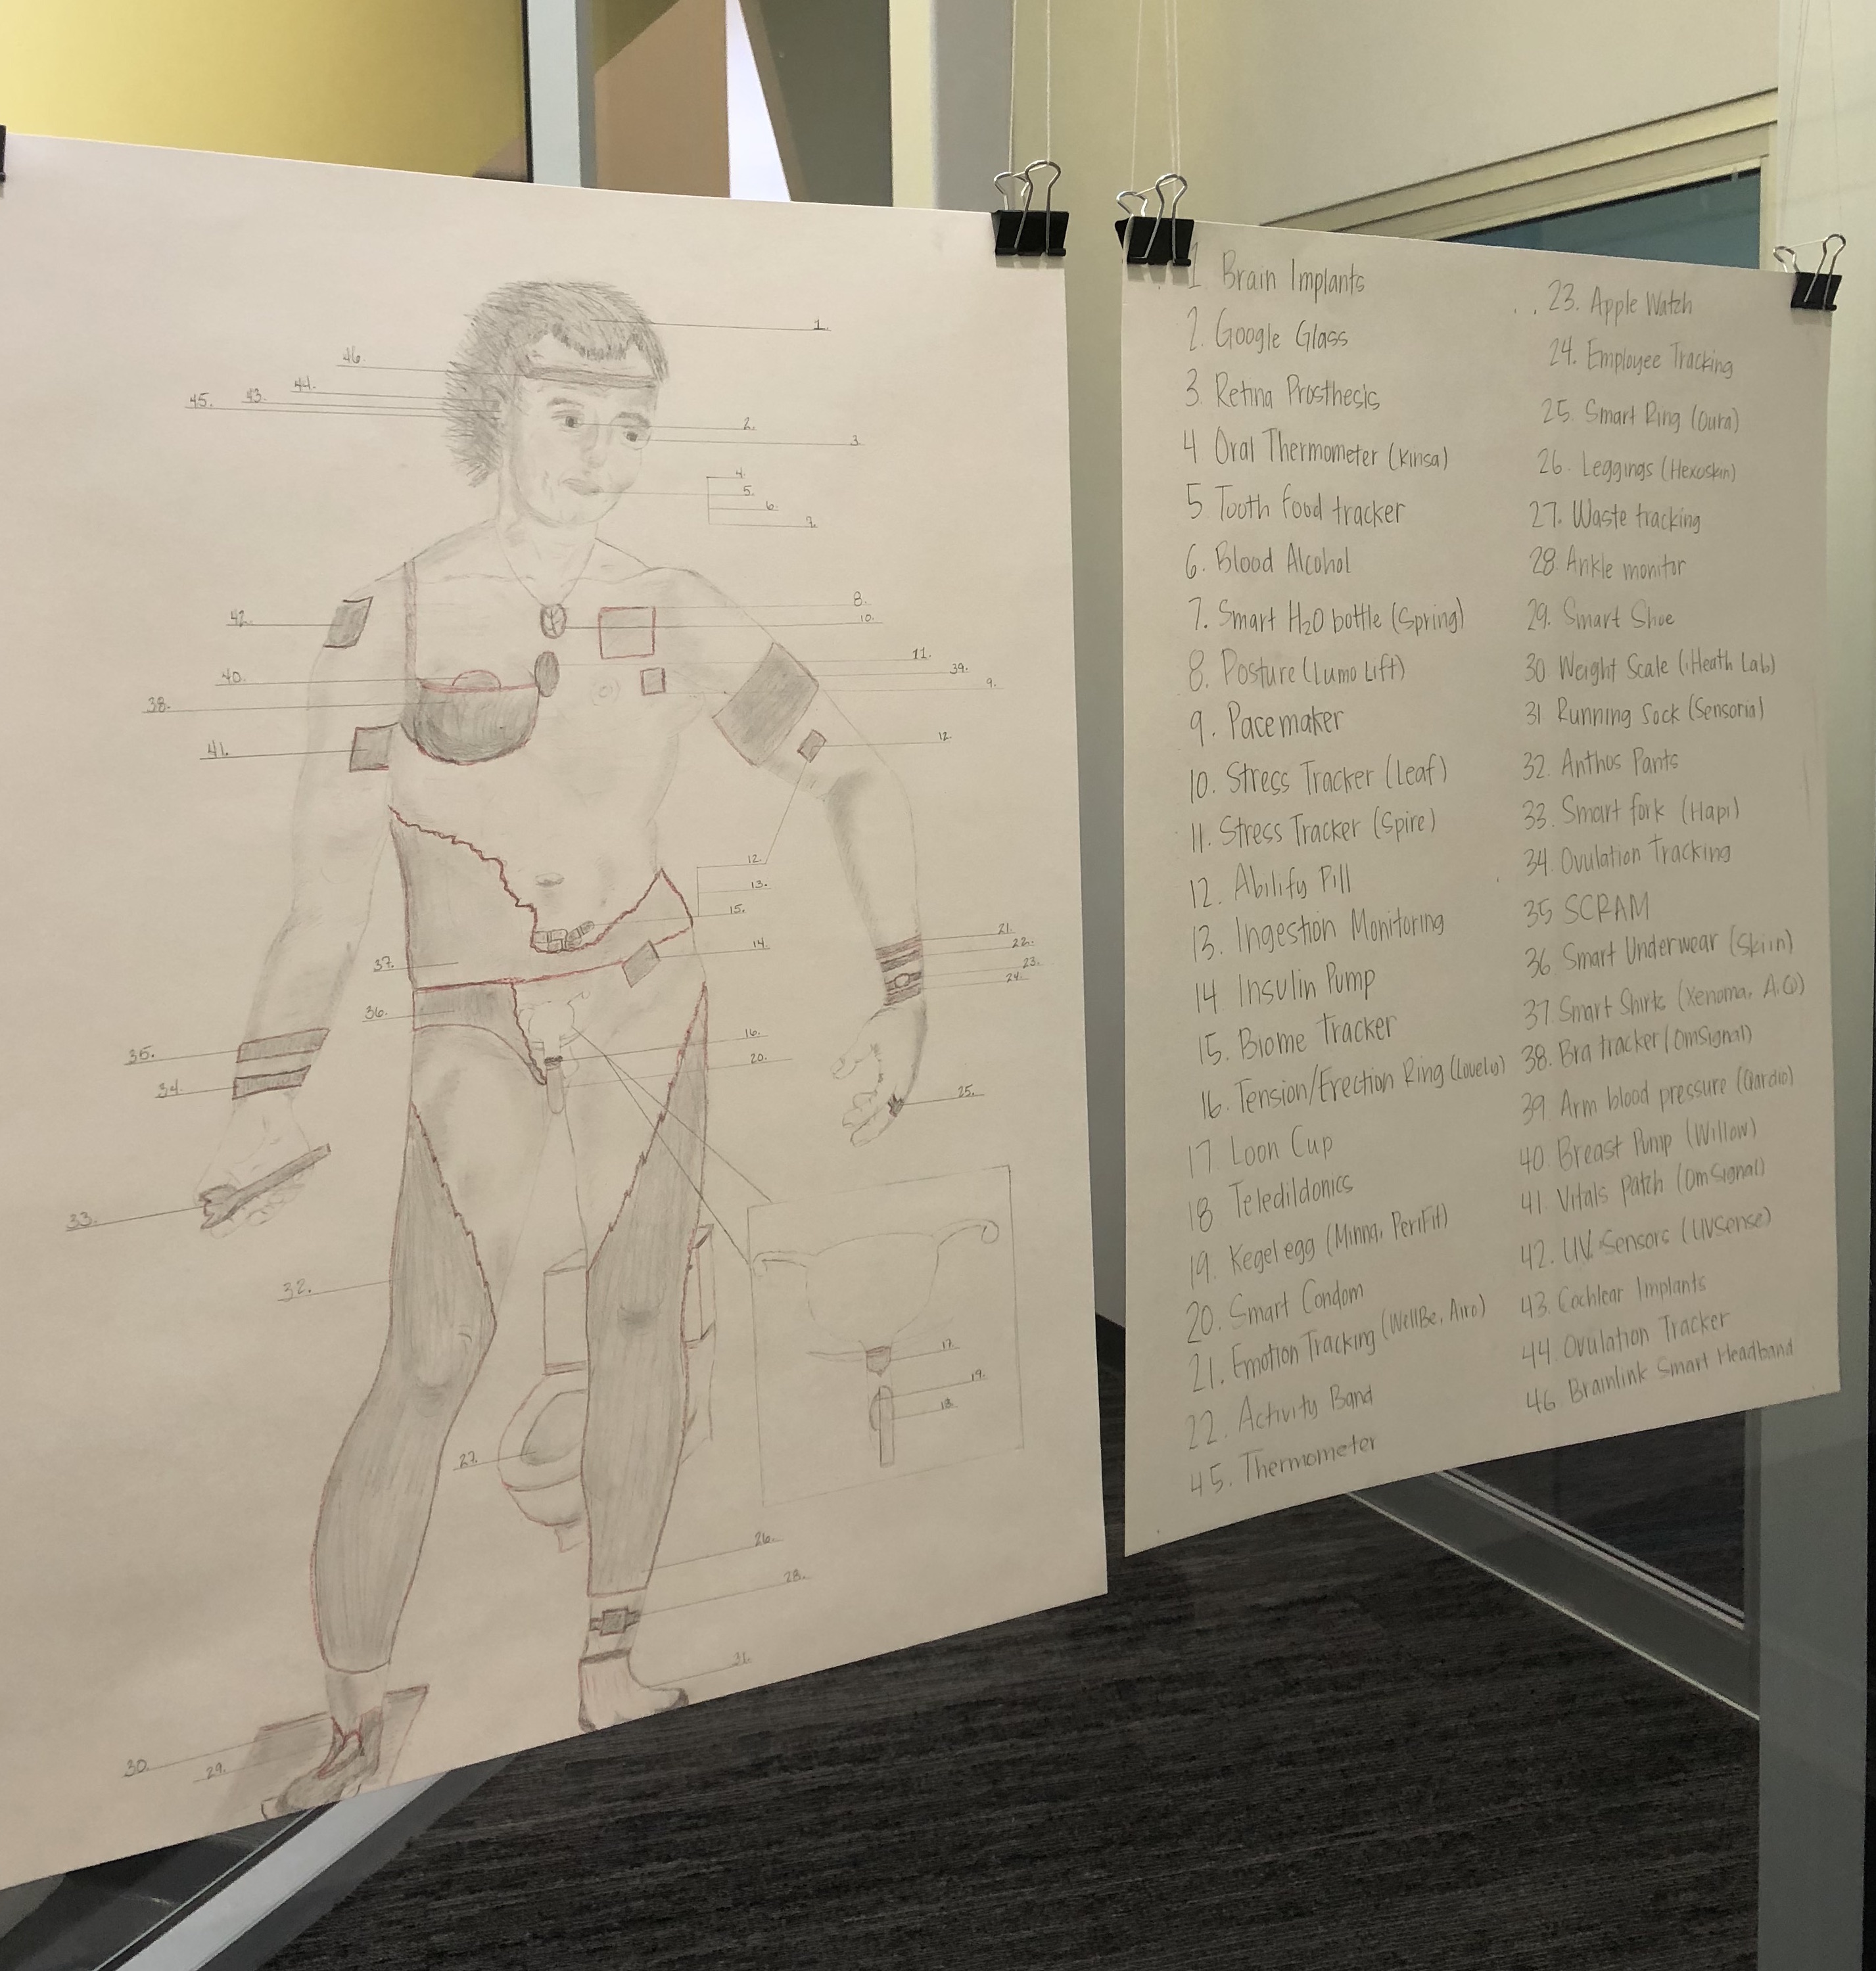 1.
46.
44.
43.
45.
2.
3.
4.
5.
6.
7.
8.
10.
42.
11.
39.
9.
40.
38.
41.
12.
12.
13.
15.
14.
37.
36.
21.
22.
23.
24.
35.
34.
16.
20.
25.
33.
32.
17.
19.
18.
27.
26.
28.
31.
30.
29.
1 Brain Implants
2. Google Glass
3 Retina Prosthesis
4 Oral Thermometer (Kinsa)
5 Tooth food tracker
6. Blood Alcohol
7. Smart H2O bottle (Spring)
8. Posture (Lumo Lift)
9. Pacemaker
10. Stress Tracker (Leaf)
11. Stress Tracker (Spire)
12. Abilify Pill
13. Ingestion Monitoring
14 Insulin Pump
15. Biome Tracker
16. Tension/Erection Ring (Lovely)
17. Loon Cup
18 Teledildonics
19. Kegel egg (Minna, PeriFit)
20. Smart Condom
21. Emotion Tracking (WellBe, Airo)
22. Activity Band
45. Thermometer
23. Apple Watch
24. Employee Tracking
25. Smart Ring (Oura)
26. Leggings (Hexoskin)
27. Waste tracking
28. Ankle monitor
29. Smart Shoe
30 Weight Scale (iHeath Lab)
31 Running Sock (Sensoria)
32. Anthos Pants
33. Smart fork (Hapi)
34. Ovulation Tracking
35 SCRAM
36 Smart Underwear (Skiin)
37. Smart Shirts (Xenoma, A.Q)
38. Bra tracker (OmSignal)
39. Arm blood pressure (Qardio)
40. Breast Pump (Willow)
41. Vitals patch (OmSignal)
42. UV Sensors (UVSense)
43. Cochlear Implants
44. Ovulation Tracker
46 Brainlink Smart Headband